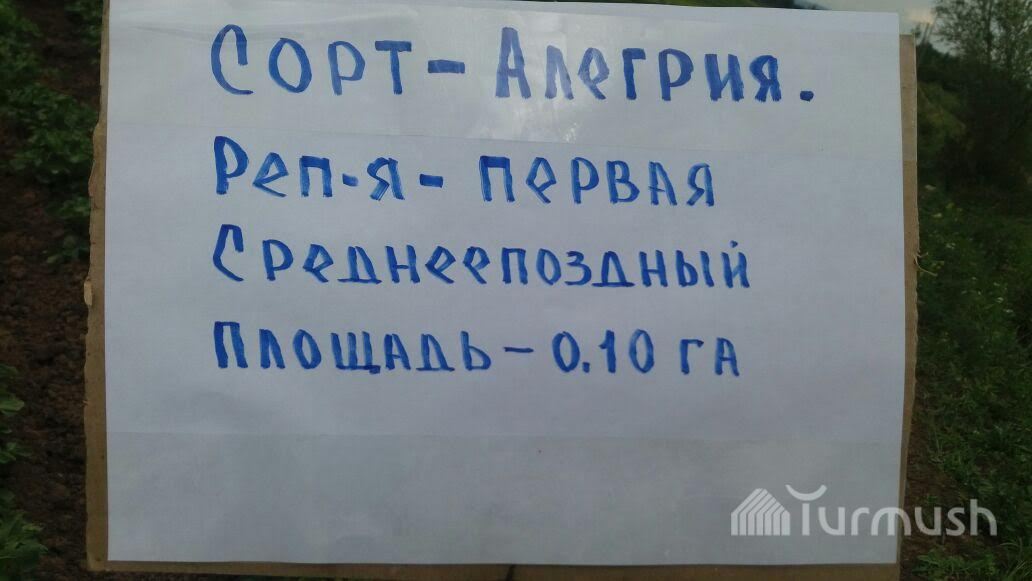 Сорт - Алегрия.
Реп-я - первая
Среднеепоздный
Площадь - 0.10 га
Turmush